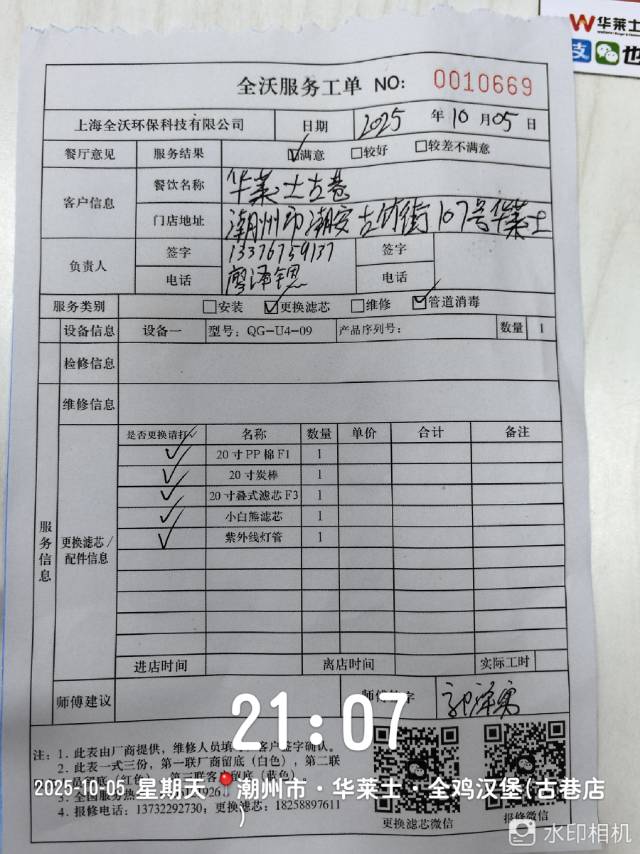 华莱士
支 也
全沃服务工单 NO: 0010669
上海全沃环保科技有限公司 日期 2025 年 10 月 05 日
餐厅意见 服务结果 ☑满意 □较好 □较差不满意
客户信息 餐饮名称 华莱士古巷
门店地址 潮州市潮安古竹街107号华莱士
负责人 签字 13376759137 签字
电话 廖泽锶 电话
服务类别 □安装 ☑更换滤芯 □维修 ☑管道消毒
设备信息 设备一 型号：QG-U4-09 产品序列号： 数量 1
检修信息
维修信息
服务信息 更换滤芯/配件信息
是否更换请打✓ 名称 数量 单价 合计 备注
✓ 20寸PP棉F1 1
✓ 20寸炭棒 1
✓ 20寸叠式滤芯F3 1
✓ 小白熊滤芯 1
✓ 紫外线灯管 1
进店时间 离店时间 实际工时
师傅建议 师傅签字
21:07
注：1. 此表由厂商提供，维修人员填 客户签字确认。
2. 此表一式三份，第一联厂商留底（白色），第二联
留底（红色），第三联客 留底（蓝色）。
2025-10-05 星期天 潮州市·华莱士·全鸡汉堡(古巷店
)
3. 全国服务热 926
4. 报修电话：13732292730；更换滤芯：18258897611
更换滤芯微信 报修微信
水印相机